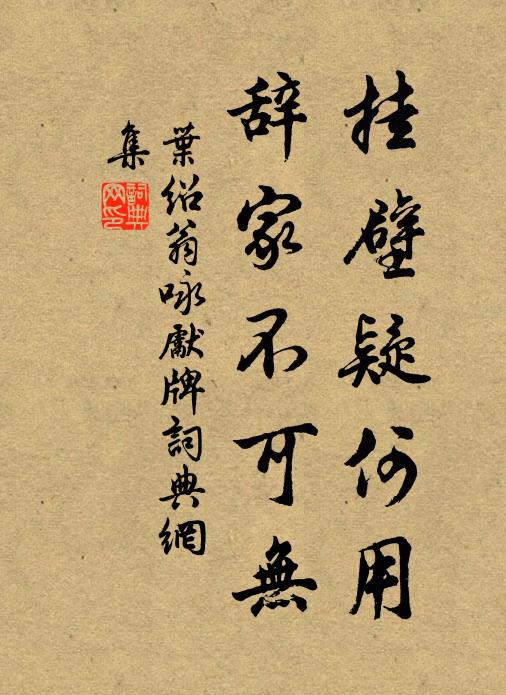 挂壁疑何用
辞家不可無
葉紹翁咏獻牌詞典網
集
詞典網印